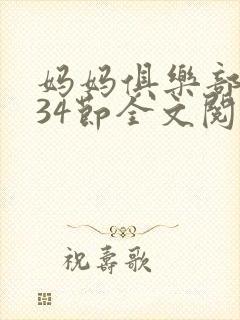 妈妈俱樂部
34節全文閱
祝壽歌